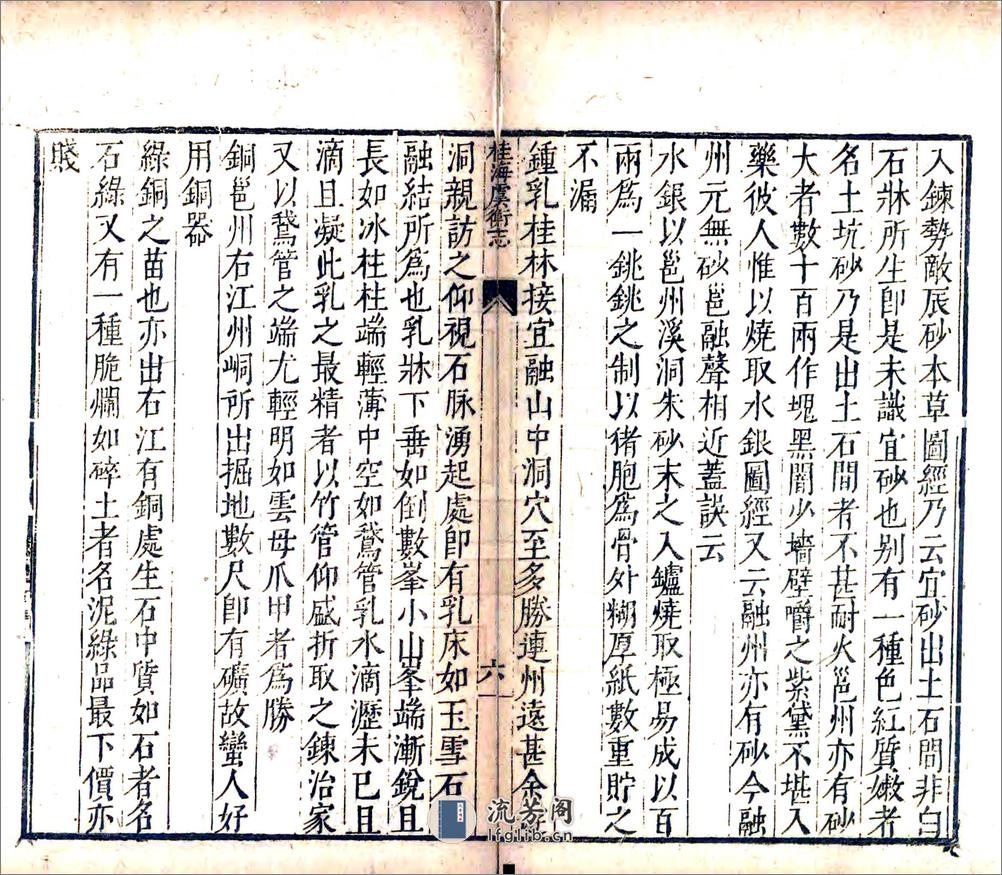 入鍊勢敵辰砂本草圖經乃云宜砂出土石間非白
石牀所生卽是未識宜砂也别有一種色紅質嫩者
名土坑砂乃是出土石間者不甚耐火邕州亦有砂
大者數十百兩作塊黑闇少墻壁嚼之紫黛不堪入
藥彼人惟以燒取水銀圖經又云融州亦有砂今融
州元無砂邕融聲相近蓋誤云
水銀以邕州溪洞朱砂末之入鑪燒取極易成以百
兩爲一銚銚之制以猪胞爲骨外糊厚紙數重貯之
不漏
鍾乳桂林接宜融山中洞穴至多勝連州遠甚余
桂海虞衡志
六
洞親訪之仰視石脉湧起處卽有乳床如玉雪石
融結所爲也乳牀下垂如倒數峯小山峯端漸銳且
長如冰柱柱端輕薄中空如鵞管乳水滴瀝未已且
滴且凝此乳之最精者以竹管仰盛折取之鍊治家
又以鵞管之端尤輕明如雲母爪甲者爲勝
銅邕州右江州峒所出掘地數尺卽有礦故蠻人好
用銅器
綠銅之苗也亦出右江有銅處生石中質如石者名
石綠又有一種脆爛如碎土者名泥綠品最下價亦
賤
流芳阁
lfglib.cn